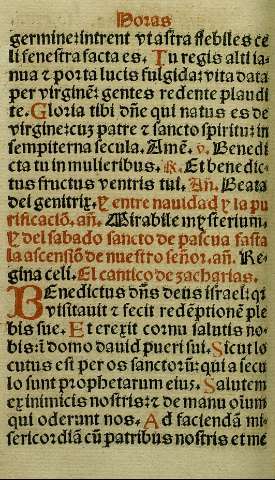 Horas
germine: intrent vt astra flebiles ce
li fenestra facta es. Tu regis alti ia-
nua ⁊ porta lucis fulgida: vita data
per virginē: gentes redente plaudi
te. Gloria tibi dn̄e qui natus es de
virgine: cuz patre ⁊ sancto spiritu: in
sempiterna secula. Amē. v. Benedi
cta tu in mulieribus. R. Et benedic-
tus fructus ventris tui. Añ. Beata
dei genitrix. Y entre nauidad y la pu
rificaciō. añ. Mirabile mysterium.
Y del sabado sancto de pascua fasta
la ascensiō de nuestro señor. añ. Re-
gina celi. El cantico de zacharias.
BEnedictus dn̄s deus israel: qi
visitauit ⁊ fecit redēptionē ple
bis sue. Et erexit cornu salutis no-
bis: ī domo dauid pueri sui. Sicut lo
cutus est per os sanctorū: qui a secu
lo sunt prophetarum eius. Salutem
ex inimicis nostris: ⁊ de manu oīum
qui oderunt nos. Ad faciendā mi-
sericordiā cū patribus nostris et me